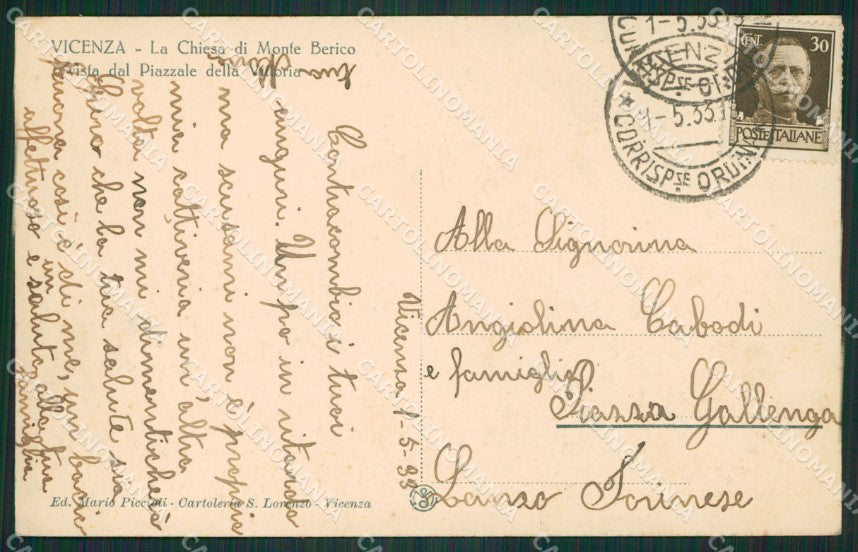 VICENZA - La Chiesa di Monte Berico
vista dal Piazzale della Vittoria
1-5.33
VICENZA
CORRISP.ZE ORD.
1-5.33
CORRISP.ZE ORDIN.
CENT. 30
POSTE ITALIANE
Contracambio i tuoi
auguri. Un po in ritardo
ma scusami non è propria
mia cattiveria un'altra
volta non mi dimenticherò
Spero che la tua salute sia
buona così è di me, un bacio
affettuoso e saluto alla tua
famiglia
tua
Vicenza 1-5-33
Alla Signorina
Angiolina Cabodi
e famiglia
Piazza Gallenga
Lanzo Torinese
Ed. Mario Piccoli - Cartoleria S. Lorenzo - Vicenza
CARTOLINOMANIA